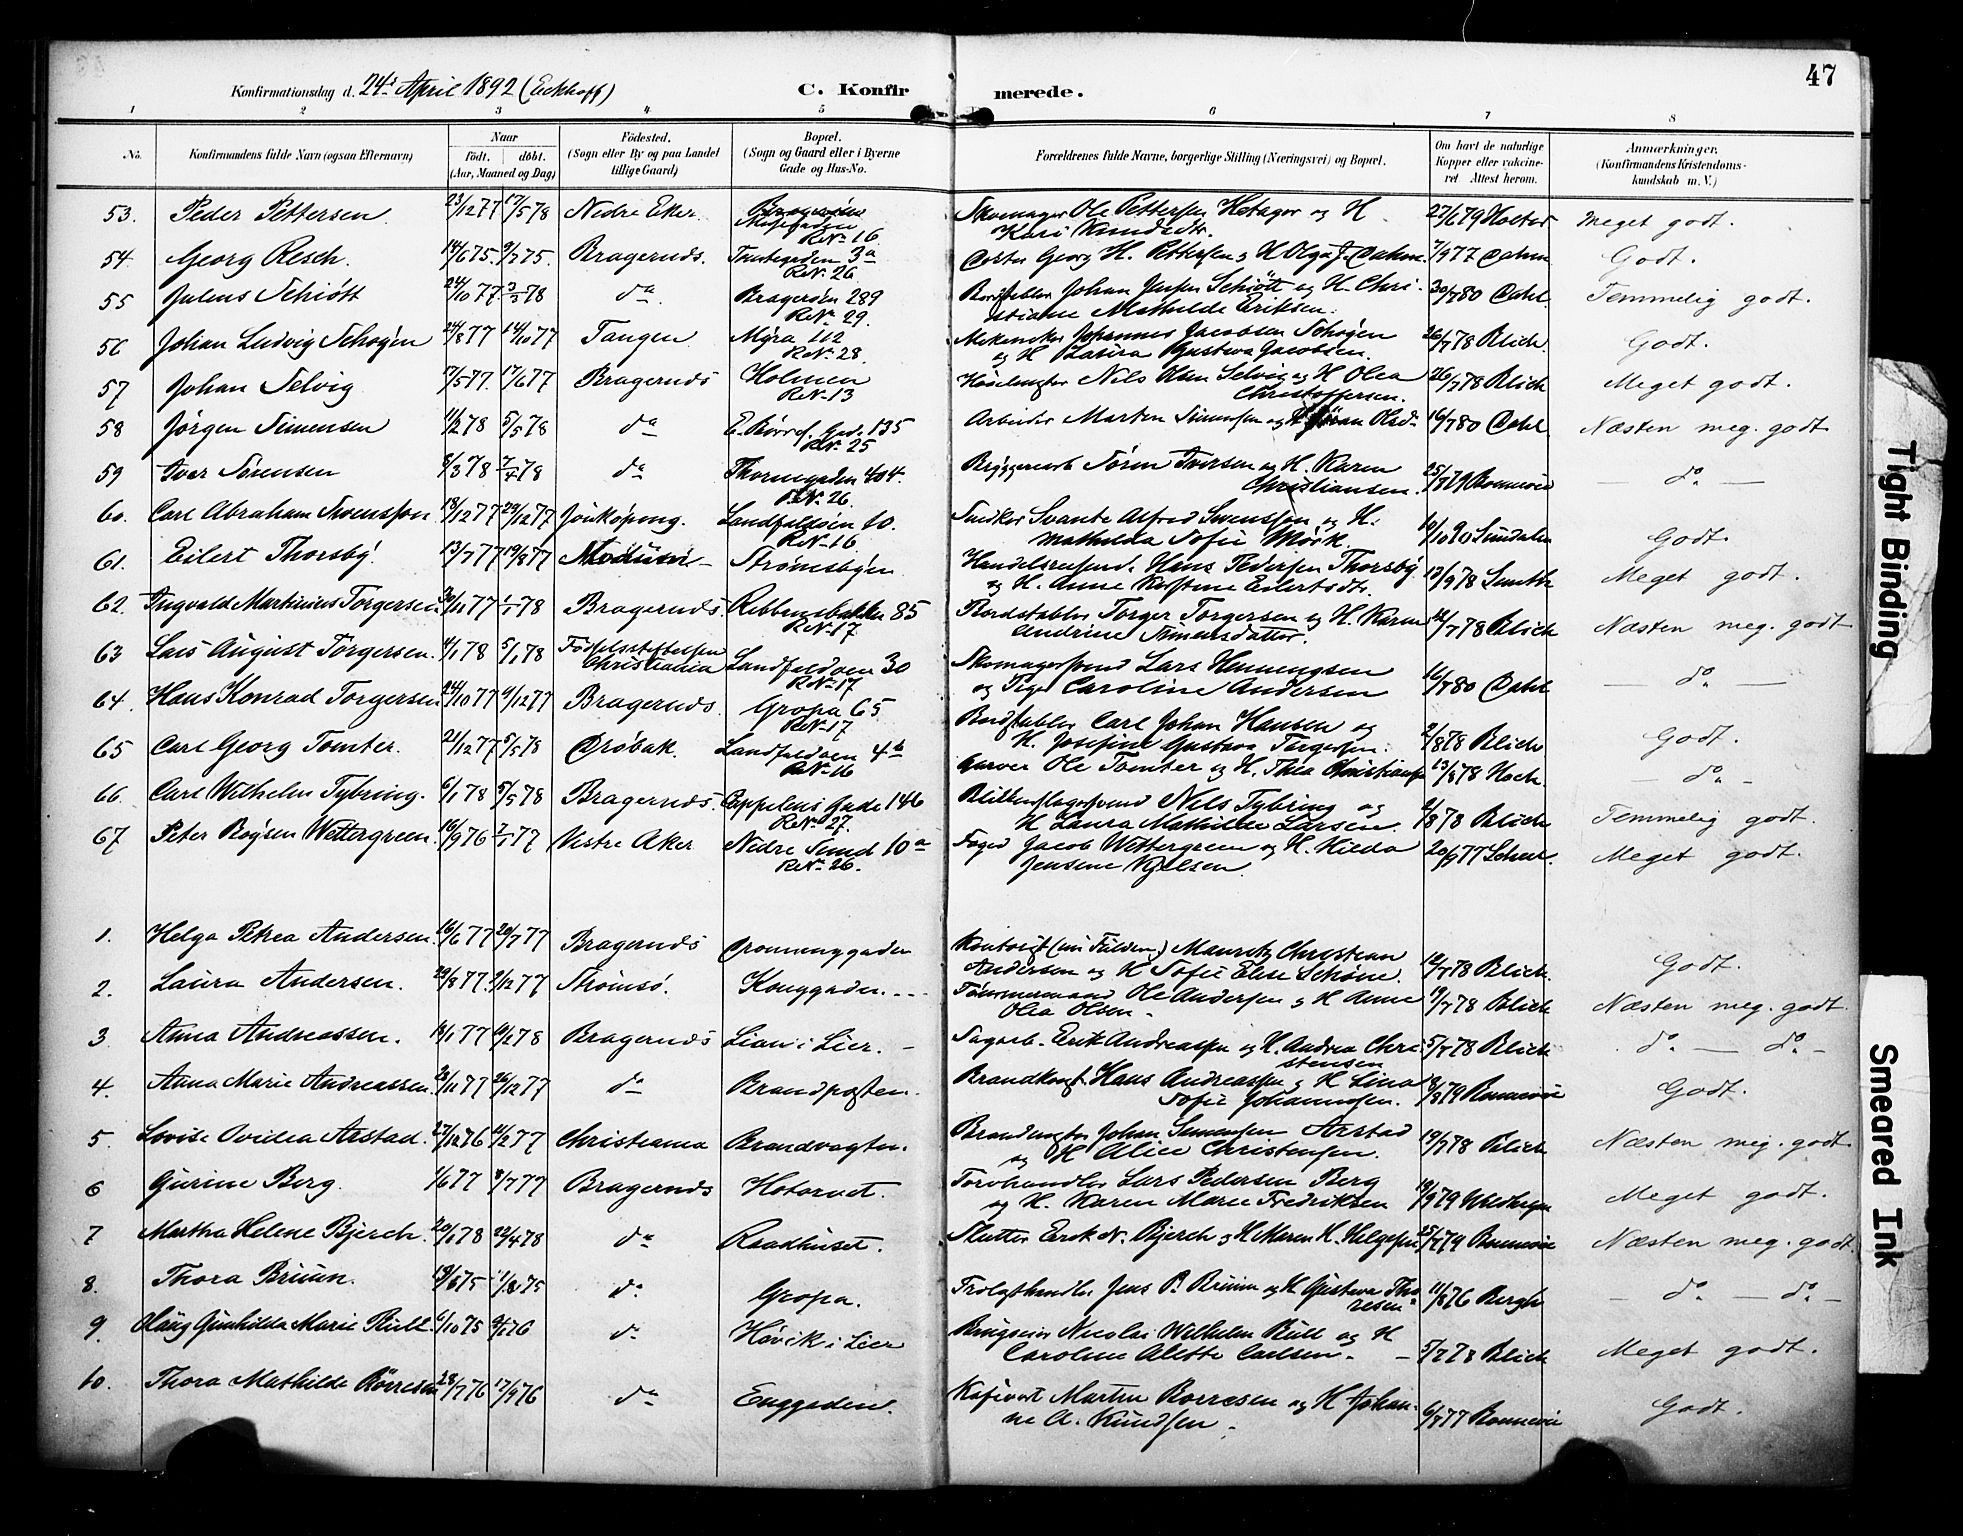 47
Konfirmationsdag d. 24de April 1892 (Eckhoff)
C. Konfirmerede.
1 2 3 4 5 6 7 8
No. Konfirmandens fulde Navn (ogsaa Efternavn) Naar født. døbt. (Aar, Maaned og Dag) Fødested. (Sogn eller By og paa Landet tillige Gaard) Bopæl. (Sogn og Gaard eller i Byerne Gade og Hus-No. Forældrenes fulde Navne, borgerlige Stilling (Næringsvei) og Bopæl. Om havt de naturlige Kopper eller vaccineret. Attest herom. Anmærkninger. (Konfirmandens Kristendomskundskab m. V.)
53. Peder Pettersen 23/12 77 17/5 78 Nedre Eker. R.No 16 Skomager Ole Pettersen og H. Kari Knudsdtr. 27/6 79 Meget godt.
54. Georg Resch. 14/6 75. Bragernæs. Tomtegaden 3a R.No 26 Georg H. Pettersen og H. Olga J. Dahm. 7/9 77 Dahm Godt.
55 Julius Schiøtt 24/10 77 3/3 78 da Bragerøen 289 R.No 29. Bordstabler Johan Jensen Schiøtt og H. Christiane Mathilde Eriksen. 30/7 80 Dahl. Temmelig godt.
56 Johan Ludvig Schogen 24/8 77 14/10 77 Tangen Myra 112 R.No 28. Johannes Jacobsen Schogen og H. Lasira Gustava Jacobsen. 26/7 78 Blich. Godt.
57 Johan Selvig 17/6 77 Bragernæs Holmen R.No 13 Nils Olsen Selvig og H. Olea Christoffersen. 26/7 78 Blich Meget godt.
58 Jørgen Simensen 5/5 78 da R.No 25 Arbeider Marten Simensen og H. Olsd. 16/7 80 Dahl. Næsten meg. godt
59 Iver Sørensen 8/3 78 da Thornegaden 404. R.No 26. Søren Iversen og H. Karen Christiansen. 25/7 79 Bonnevie – do –
60. Carl Abraham Svensson. 18/12 77 29/12 77 Jönköping. Landfaldøen 10. R.No 16 Snedker Svante Alfred Svensson og H. Mathilda Sofie Mörk. 10/10 90 Sundalen Godt.
61. Eilert Thorsby 13/7 77 19/8 77 Modum – Strømsbyen Handelsreisend. Hans Pedersen Thorsby og H. Anne Kirstine Eilertsdtr. 13/9 78 Smith Meget godt.
62. Ingvald Martinius Torgersen 30/11 77 1/1 78 Bragernæs. Ribbensbakken 85 R.No 17. Bordstabler Torger Torgersen og H. Karen Andrine Simensdatter. /7 78 Blich Næsten meg. godt
63 Lars August Torgersen. 4/1 78 5/1 78 Fødselsstiftelsen Christiania Landfaldøen 30 R.No 17 Skomagersvend Lars Henningsen og Pige Caroline Andersen 16/7 80 Dahl – do –
64. Hans Konrad Torgersen 24/10 77 Bragernæs. Gropa 65 R.No 17 Bordstabler Carl Johan Hansen og H. Josefine Gustava Torgersen. 2/8 78 Blich Godt.
65 Carl Georg Tomter. 21/12 77 5/5 78 Drøbak. Landfaldøen 4b R.No 16 Garver Ole Tomter og H. Thea Christiansen 13/8 78 Hoch. – do –
66. Carl Wilhelm Tybring. 6/1 78 5/5 78 Bragernæs. Cappelens Gade 146 R.No 27. Blikkenslagersvend Nils Tybring og H. Laura Mathilde Larsen. 2/8 78 Blich Temmelig godt.
67. Peter Boysen Wettergreen. 16/9 76 7/1 77 Vestre Aker Nedre Sund 10a R.No 26. Foged Jacob Wettergreen og H. Hilda Jensine Kjelsen. 20/9 77 Meget godt.
1. Helga Petrea Andersen. 16/6 77 20/7 77 Bragernæs Dronninggaden Kontorist (nu Fulden) Mauritz Christian Andersen og H. Sofie Elise Schöne. /7 78 Blich. Godt.
2. Laura Andersen. 29/8 77. 9/12 77 Strømsø. Konggaden. Tømmermand Ole Andersen og H. Anne Olea Olsen – 19/7 78 Blich Næsten meg. godt.
3 Anna Andreassen. 18/1 77 Bragernæs Lian i Lier. – Sagarb. Erik Andreassen og H. Andrea Christensen 5/7 78 Blich do – do –
4. Anna Marie Andreassen. 26/12 77 da Brandposten. Brandkonst. Hans Andreassen og H. Lina Sofie Johannesen. 8/8 79 Bonnevie Godt.
5. Lovise Ovidea Arstad. 27/12 76 11/2 77 Christiania Brandvagten. Brandvagter Johan Simensen Arstad og H. Alice Christensen. 19/7 78 Blich Næsten meg. godt
6 Gurine Berg. 1/6 77 8/7 77 Bragernæs Høtorvet. Torvhandler Lars Pedersen Berg og H. Karen Marie Fredriksen 19/9 79 Meget godt.
7 Martha Helene Bjerch. 20/1 78 22/4 78 da Raadhuset. Slutter Eric N. Bjerch og H. Maren H. Helgesen 25/7 79 Bonnevie Næsten meg. godt.
8. Thora Bruun. 19/6 75 1/8 75 do Gropa. Jens P. Bruun og H. Gustava Thoresen. 11/8 76 Bergh – do – do –
9. Gunhilda Marie Bull. 6/10 75 da Høvik i Lier Brugseier Nicolai Wilhelm Bull og H. Caroline Alette Carlsen. – 5/7 78 Blich Meget godt.
10. Thora Mathilde Børresen 28/7 76 17/9 76 da Enggaden. Martin Børresen og H. Johanne A. Knudsen – 6/7 77 Bonnevie Godt.
Tight Binding
Smeared Ink